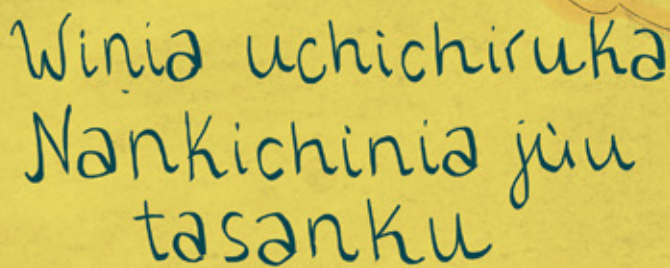 Winia uchichiruka
Nankichinia jùu
tasanku